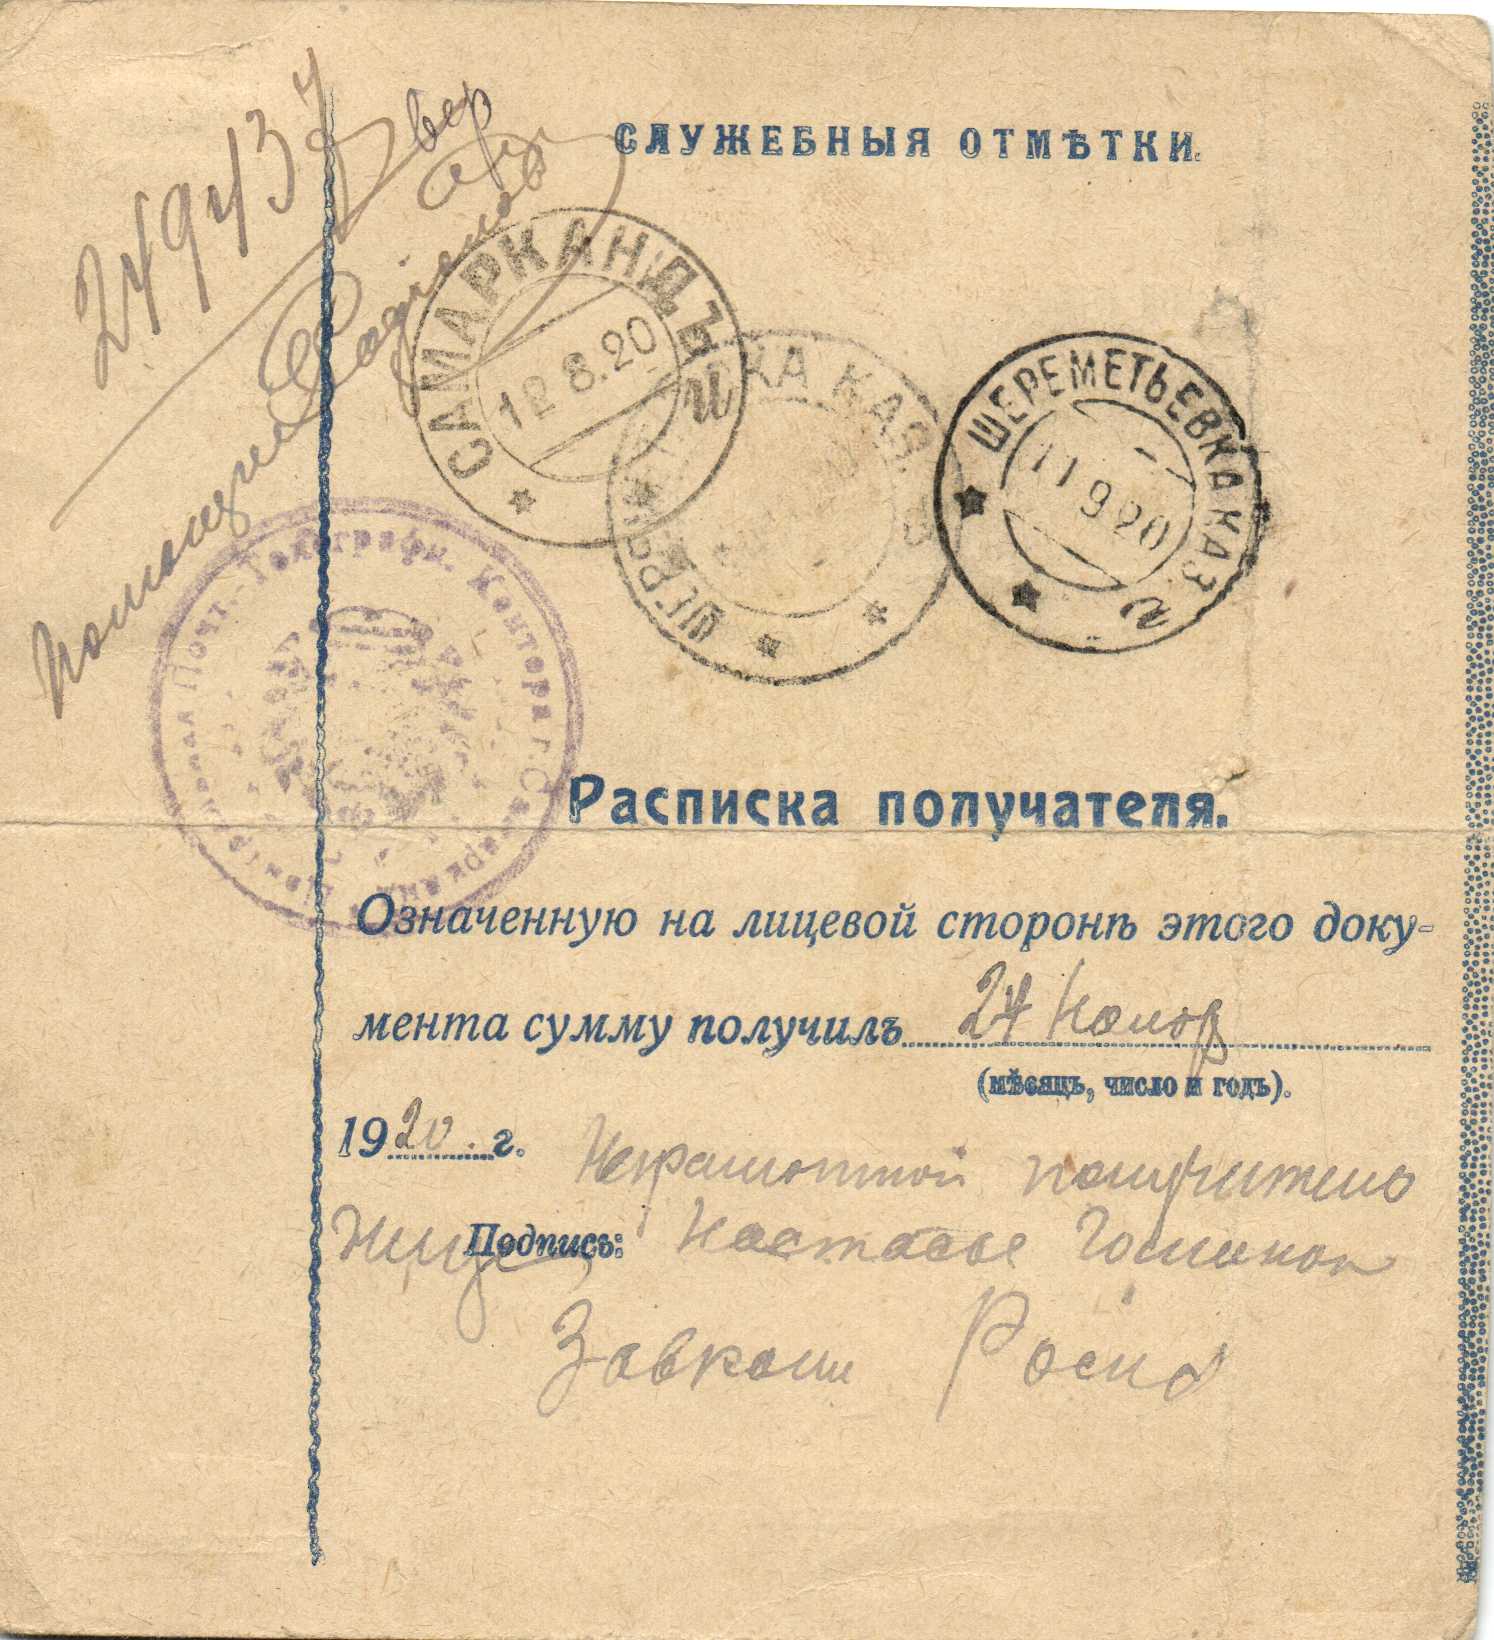 СЛУЖЕБНЫЯ ОТМѢТКИ.
249437
САМАРКАНДЪ
12 8.20
и
ШЕРЕМЕТЬЕВКА КАЗ
11 9 20
и
КА КАЗ.
Почт. Телеграфн. Контора г. Самарканд
Расписка получателя.
Означенную на лицевой сторонѣ этого доку-
мента сумму получилъ 24
(мѣсяцъ, число и годъ).
1920 г.
Подпись: Настасье